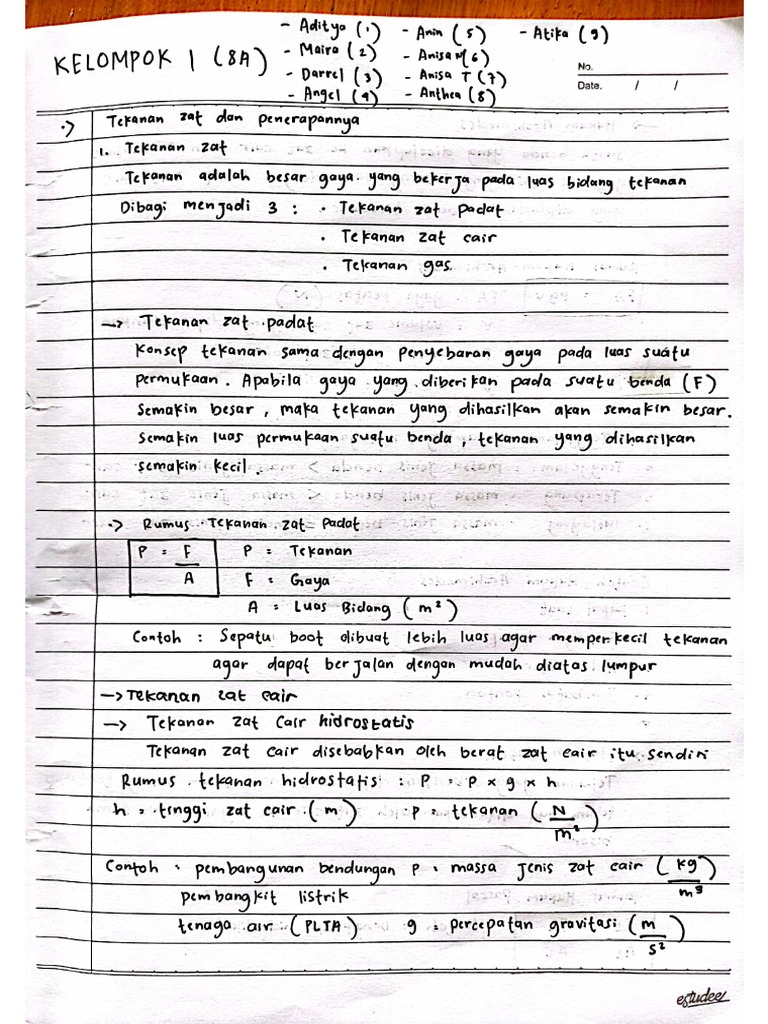 KELOMPOK 1 (8A)
- Aditya (1)
- Maira (2)
- Darrel (3)
- Angel (4)
- Anin (5)
- Anisa N (6)
- Anisa T (7)
- Anthea (8)
- Atika (9)
No.
Date. / /
·> Tekanan zat dan penerapannya
1. Tekanan zat
Tekanan adalah besar gaya yang bekerja pada luas bidang tekanan
Dibagi menjadi 3 : · Tekanan zat padat
· Tekanan zat cair
· Tekanan gas
-> Tekanan zat padat
Konsep tekanan sama dengan penyebaran gaya pada luas suatu
permukaan. Apabila gaya yang diberikan pada suatu benda (F)
Semakin besar, maka tekanan yang dihasilkan akan semakin besar.
Semakin luas permukaan suatu benda, tekanan yang dihasilkan
semakin kecil.
·> Rumus Tekanan zat Padat
P = F / A P = Tekanan
F = Gaya
A = Luas Bidang (m²)
Contoh : Sepatu boot dibuat lebih luas agar memperkecil tekanan
agar dapat berjalan dengan mudah diatas lumpur
-> Tekanan zat cair
-> Tekanan zat Cair hidrostatis
Tekanan zat cair disebabkan oleh berat zat cair itu sendiri
Rumus tekanan hidrostatis : P = P x g x h
h = tinggi zat cair (m) p = tekanan (N/m²)
Contoh : pembangunan bendungan P = massa jenis zat cair (kg/m³)
pembangkit listrik
tenaga air (PLTA) g = percepatan gravitasi (m/s²)
estudee